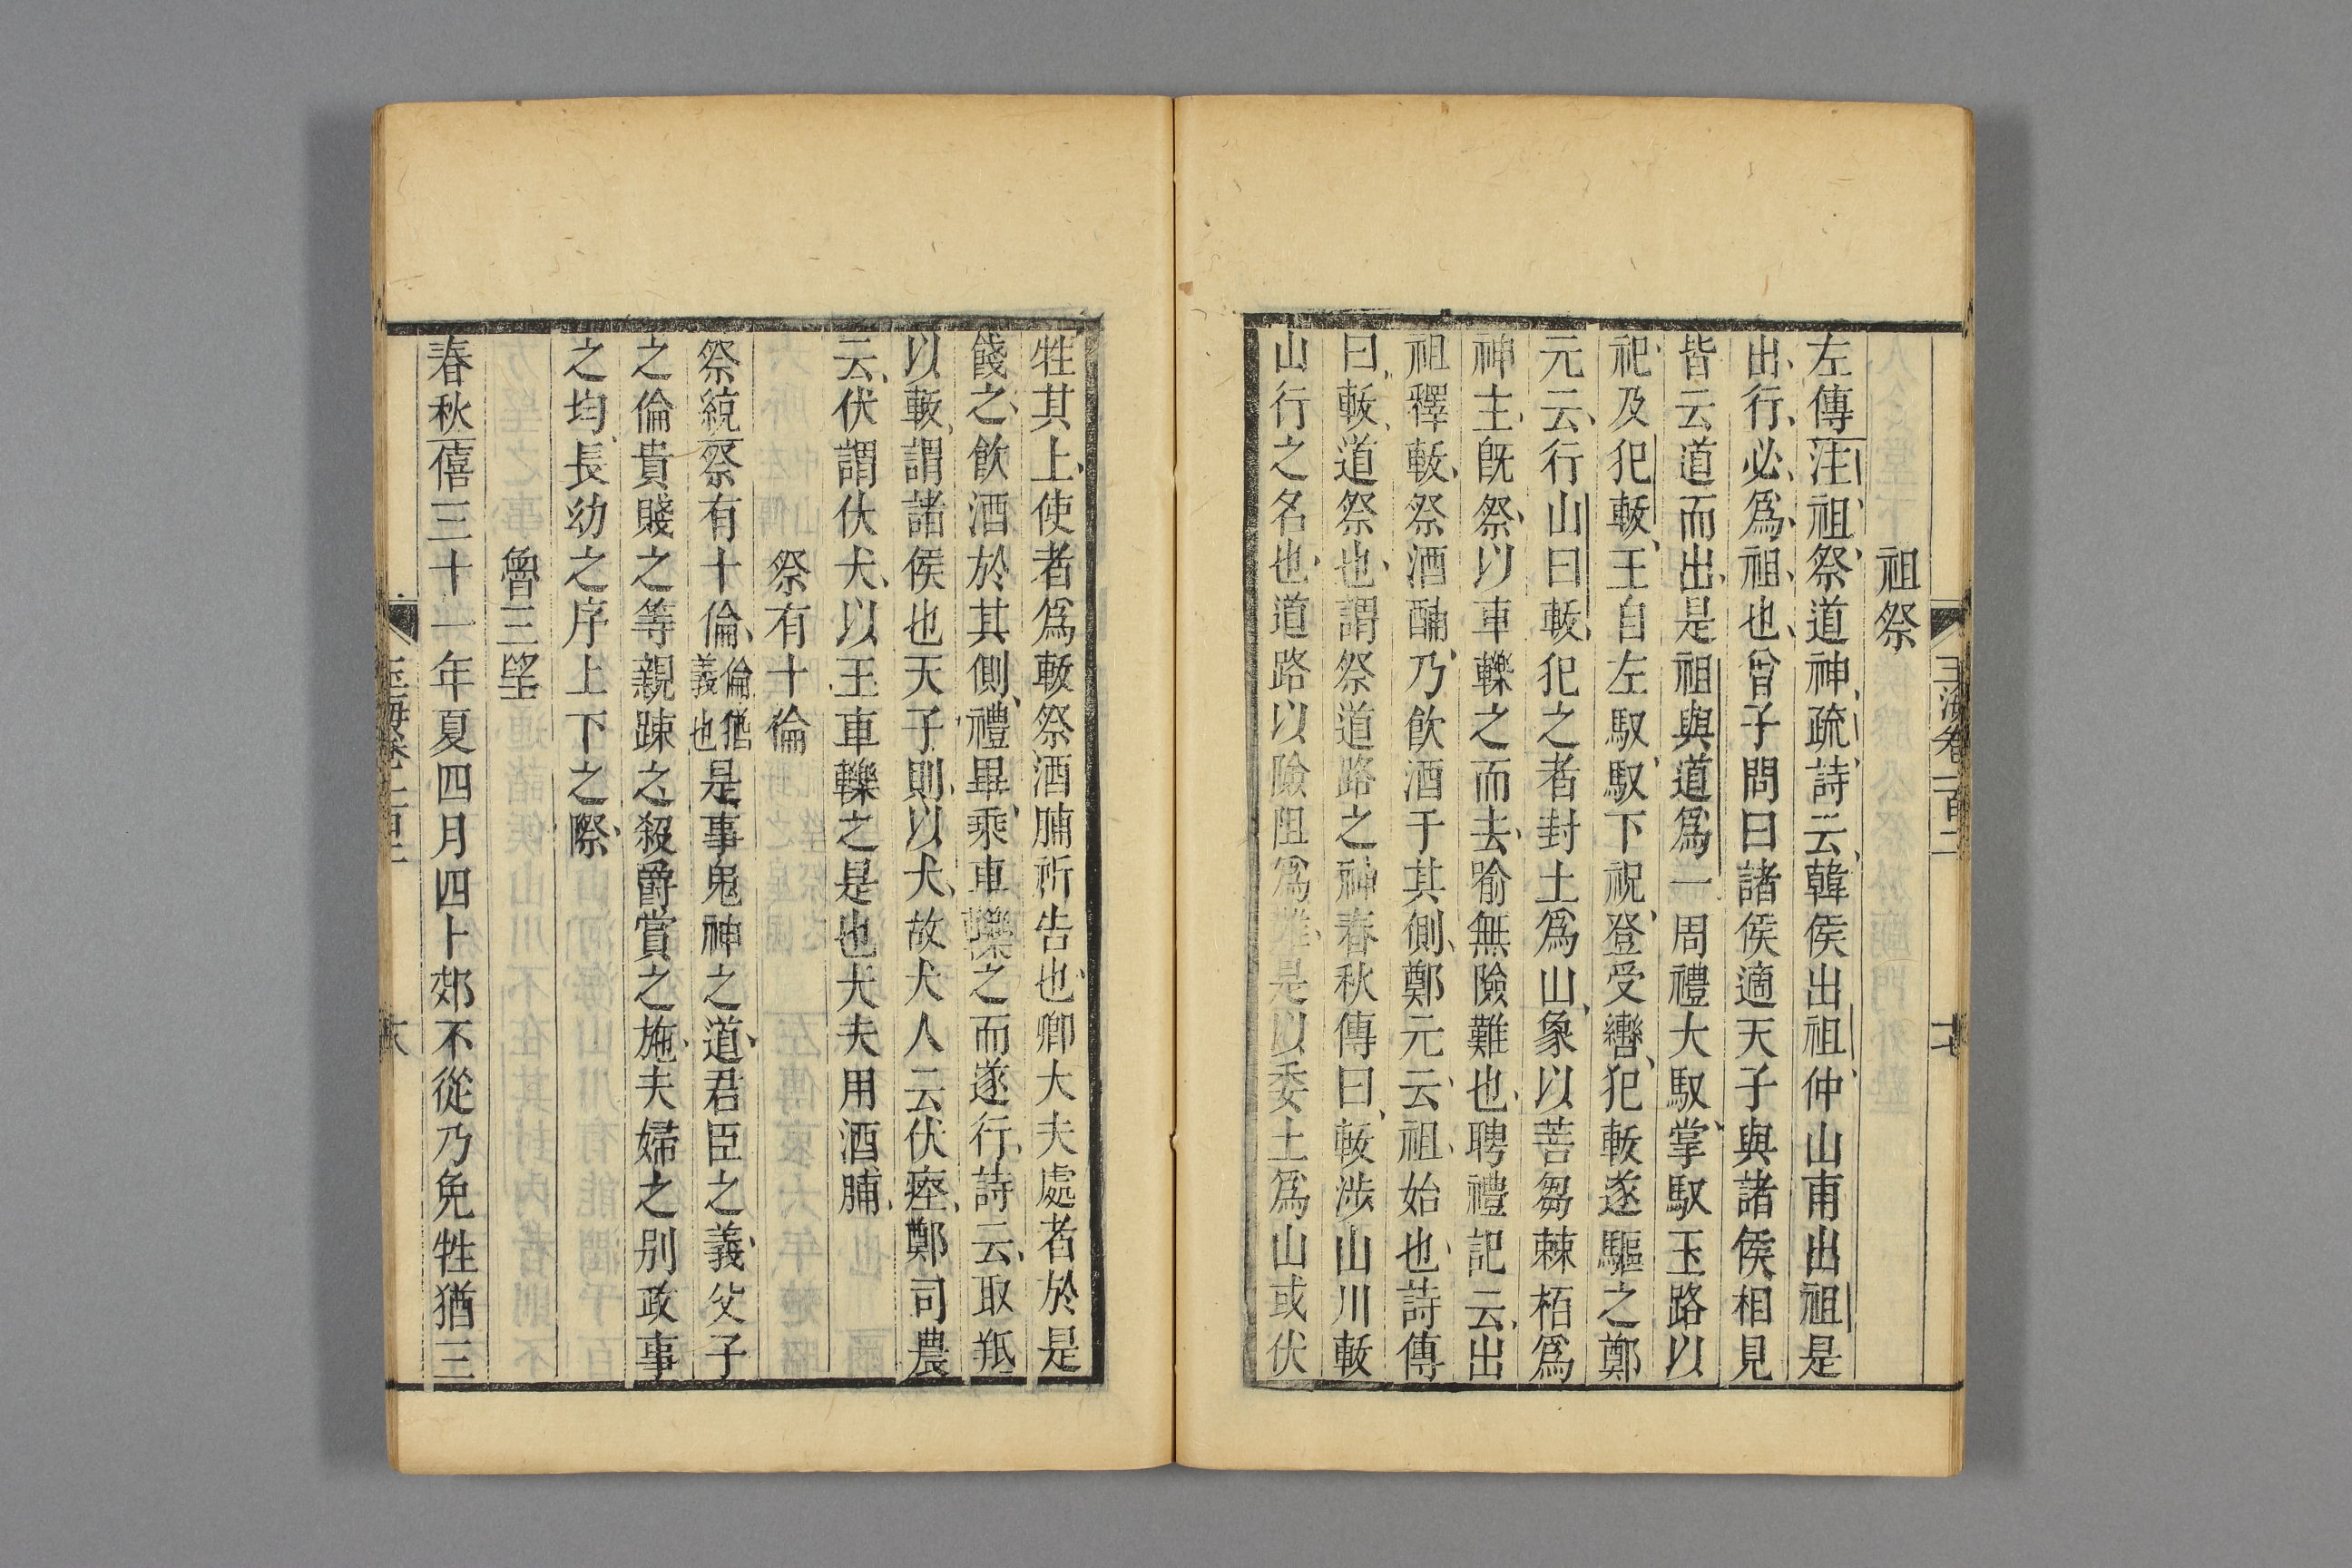 玉海卷一百二
十七
祖祭
左傳注祖祭道神疏詩云韓侯出祖仲山甫出祖是
出行必爲祖也曾子問曰諸侯適天子與諸侯相見
皆云道而出是祖與道爲一周禮大馭掌馭玉路以
祀及犯軷王自左馭馭下祝登受轡犯軷遂驅之鄭
元云行山曰軷犯之者封土爲山象以菩芻棘栢爲
神主旣祭以車轢之而去喻無險難也聘禮記云出
祖釋軷祭酒酺乃飲酒于其側鄭元云祖始也詩傳
曰軷道祭也謂祭道路之神春秋傳曰軷涉山川軷
山行之名也道路以險阻爲難是以委土爲山或伏
牲其上使者爲軷祭酒脯祈告也卿大夫處者於是
餞之飲酒於其側禮畢乘車轢之而遂行詩云取羝
以軷謂諸侯也天子則以犬故犬人云伏瘞鄭司農
云伏謂伏犬以王車轢之是也大夫用酒脯
祭有十倫
祭統祭有十倫倫猶義也是事鬼神之道君臣之義父子
之倫貴賤之等親踈之殺爵賞之施夫婦之别政事
之均長幼之序上下之際
魯三望
春秋僖三十一年夏四月四卜郊不從乃免牲猶三
玉海卷一百二